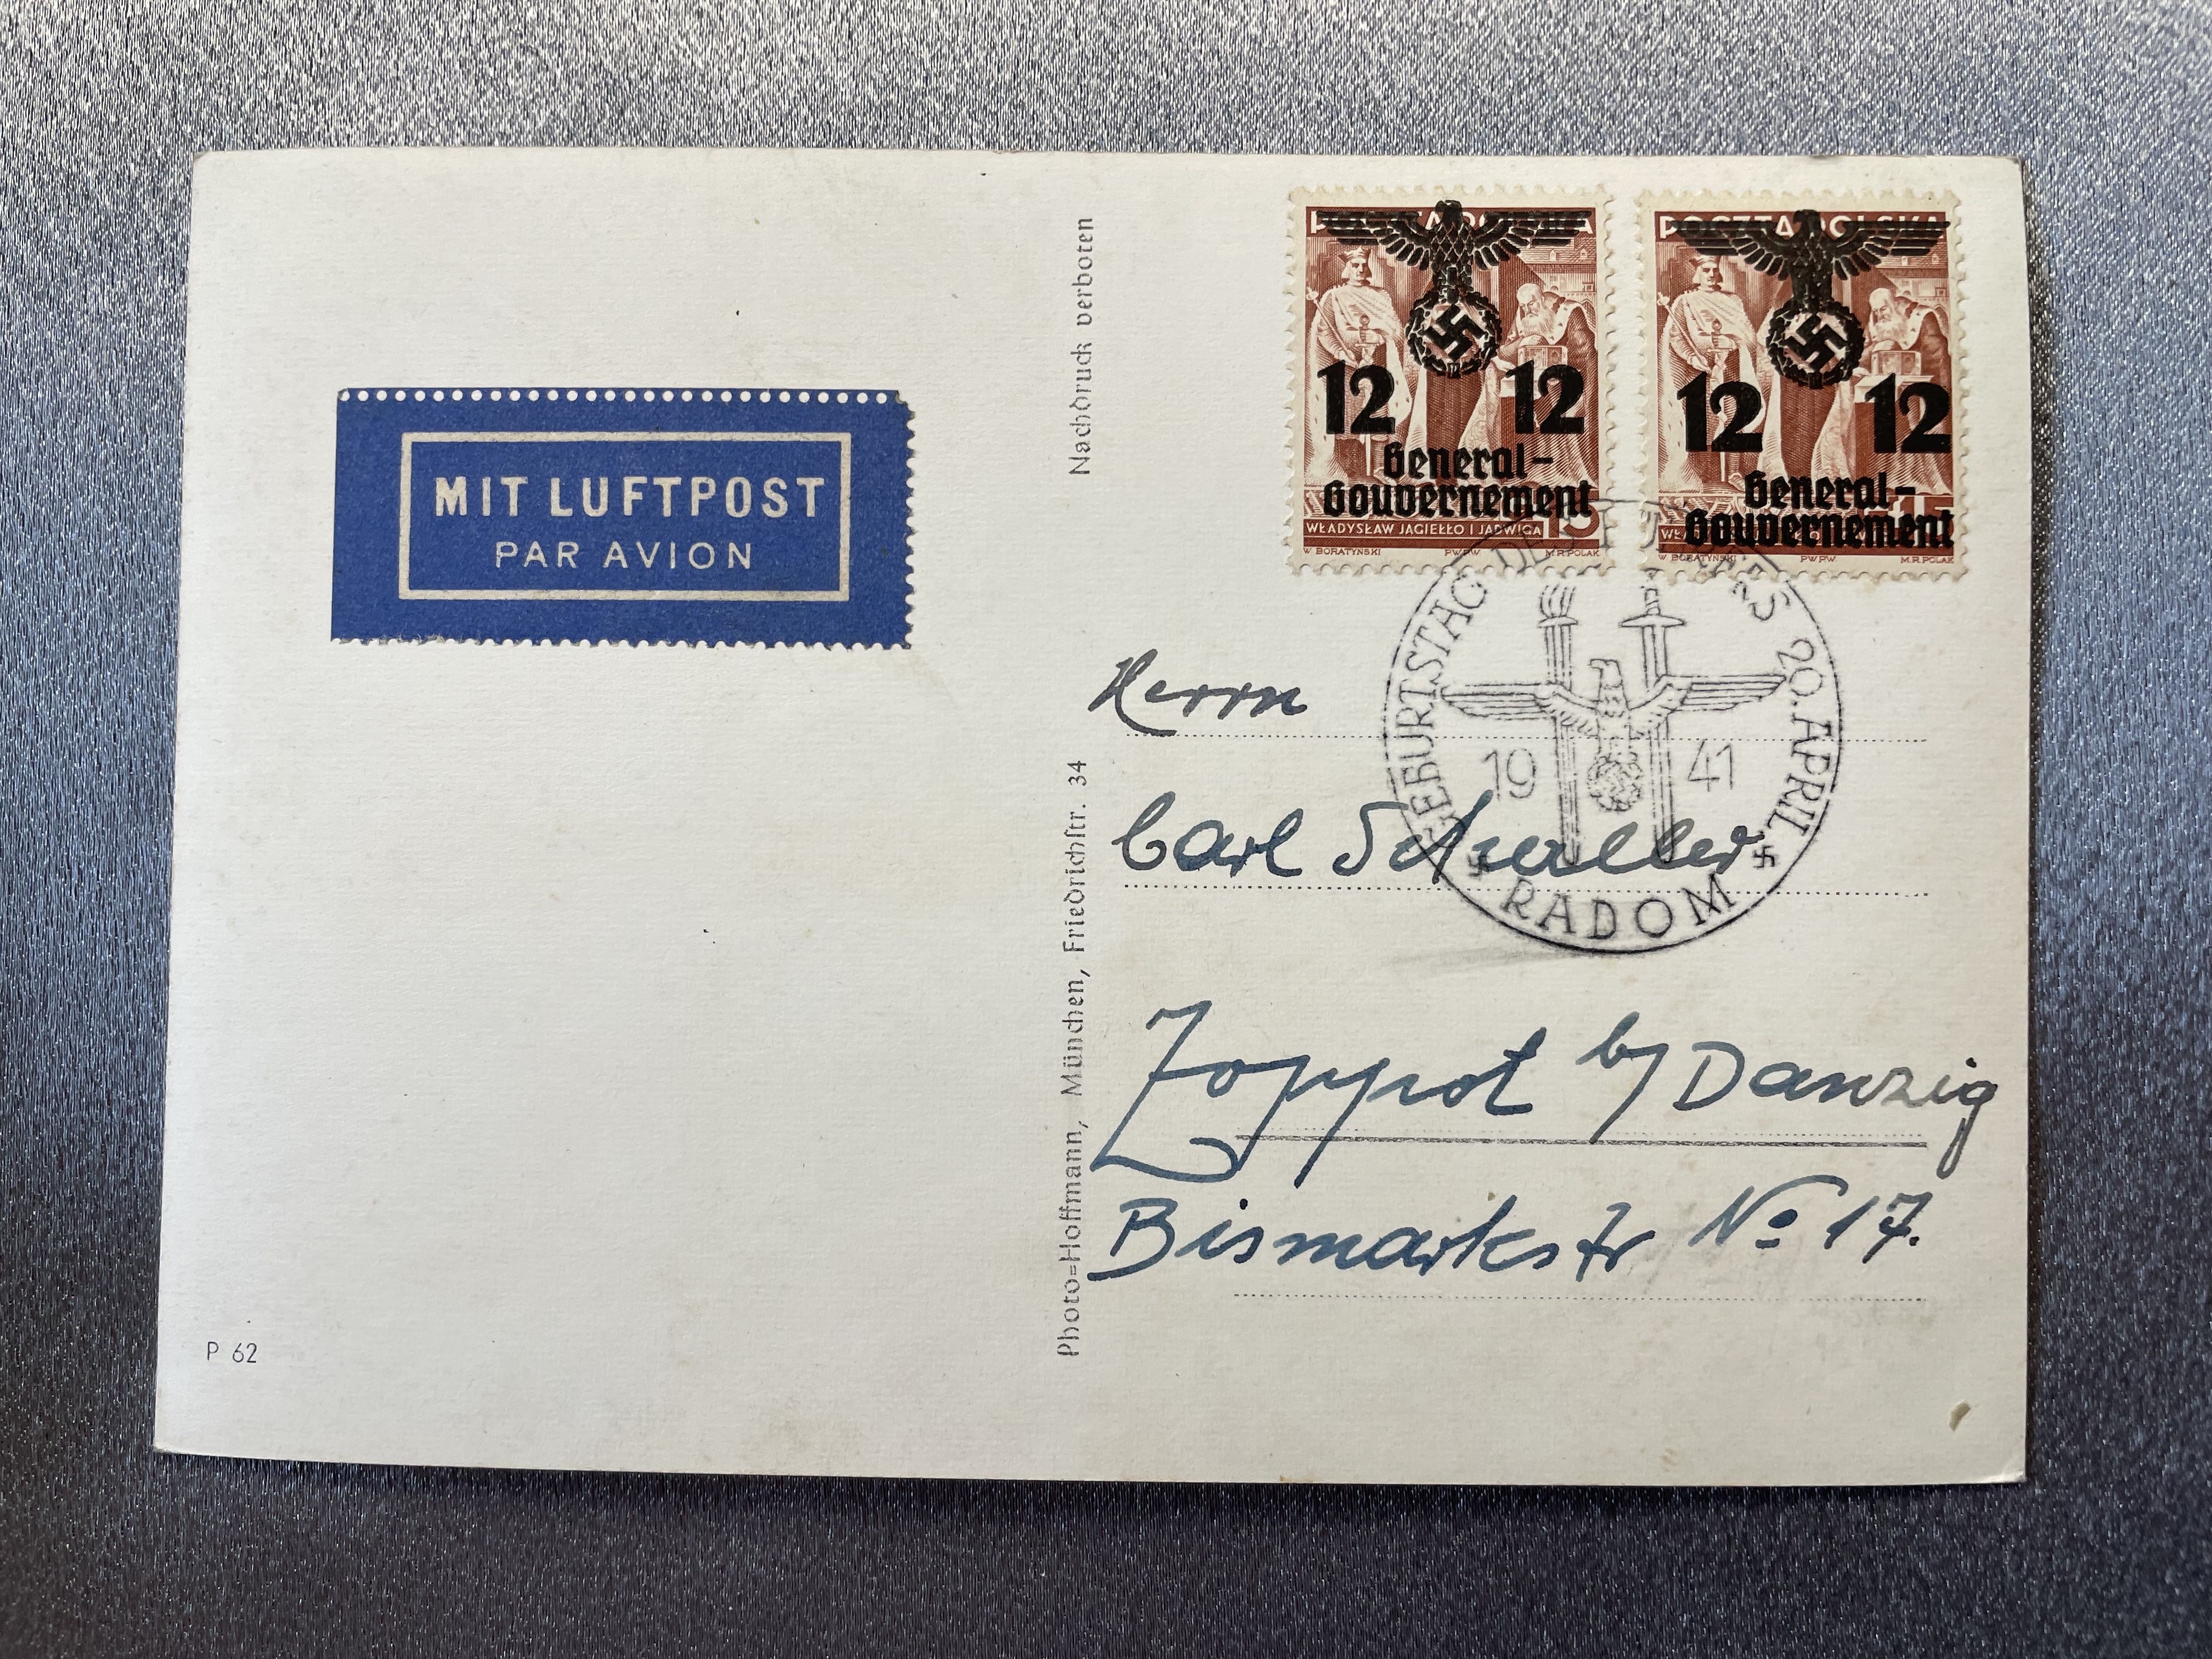 Nachdruck verboten
POCZTA POLSKA
12 12
General-
Gouvernement
15
WŁADYSŁAW JAGIEŁŁO I JADWIGA
W. BORATYŃSKI P.W.P.W. M.R. POLAK
POCZTA POLSKA
12 12
General-
Gouvernement
15
W. BORATYŃSKI P.W.P.W. M.R. POLAK
MIT LUFTPOST
PAR AVION
GEBURTSTAG DES FÜHRERS 20. APRIL
19 41
RADOM
Herrn
Carl Schuller
Zoppot b/ Danzig
Bismarkstr No 17.
Photo=Hoffmann, München, Friedrichstr. 34
P 62